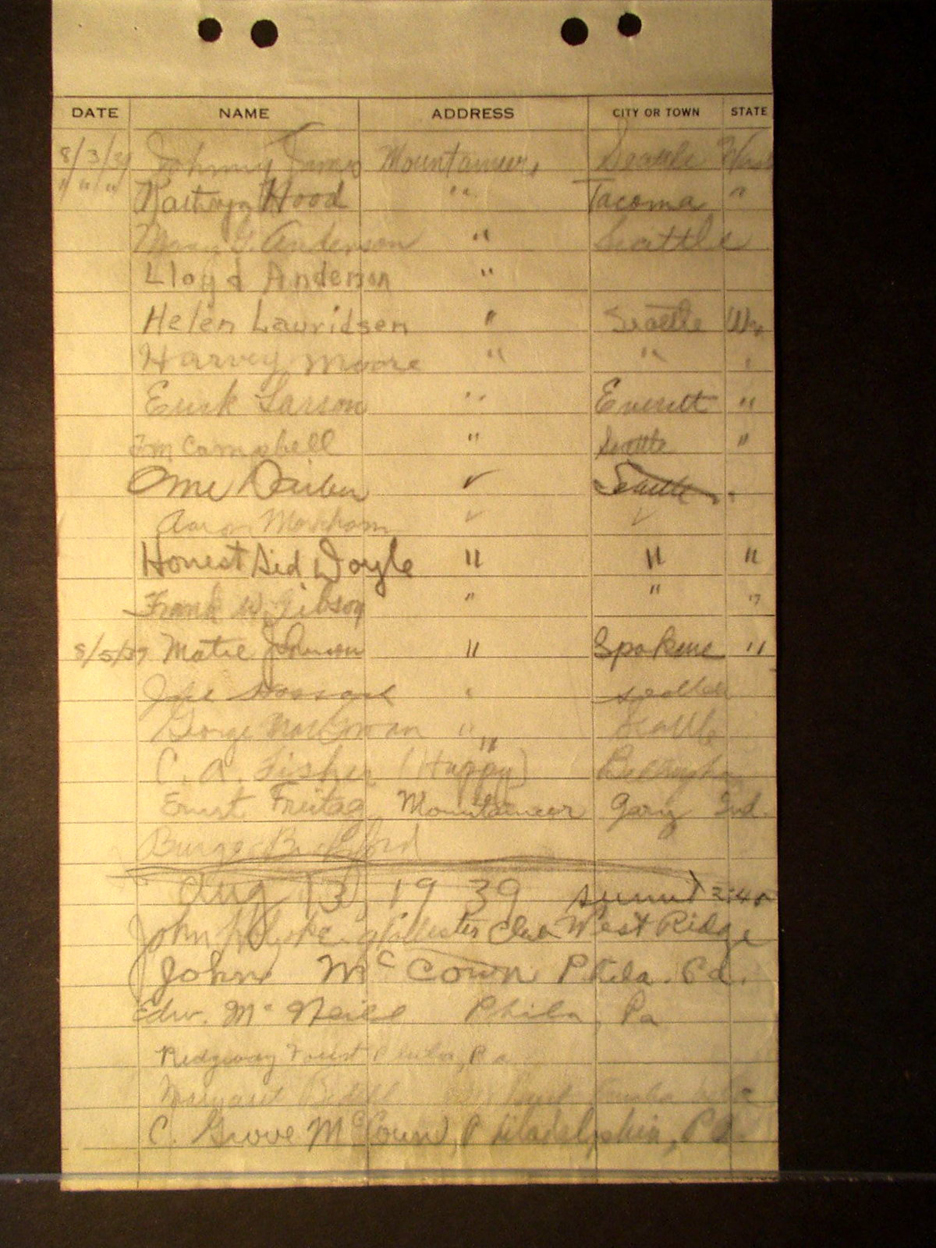 DATE NAME ADDRESS CITY OR TOWN STATE
8/3/39 Johnny James Mountaineers Seattle Wash
" " " Hood " Tacoma "
Mary G. Anderson " Seattle
Lloyd Anderson "
Helen Lauridsen " Seattle Wn.
Harvey Moore " "
Erick Larson " Everett "
Campbell " Seattle "
Ome Daiber ✓ Seattle "
Aaron Markham ✓ ✓
Honest Sid Doyle " " "
Frank W. Gibson " " "
8/5/39 Johnson " Spokane "
" Seattle
George MacGowan " Seattle
C. A. Fisher (Happy) " Bellingham
Ernst Freitag Mountaineer Gary Ind.
Burge Bickford
Aug 13, 1939 summit
John Club West Ridge
John McCown Phila. Pa.
Edw. McNeill Phila, Pa
Ridgway Phila, Pa
Margaret
C. Grove McCown, Philadelphia, Pa.